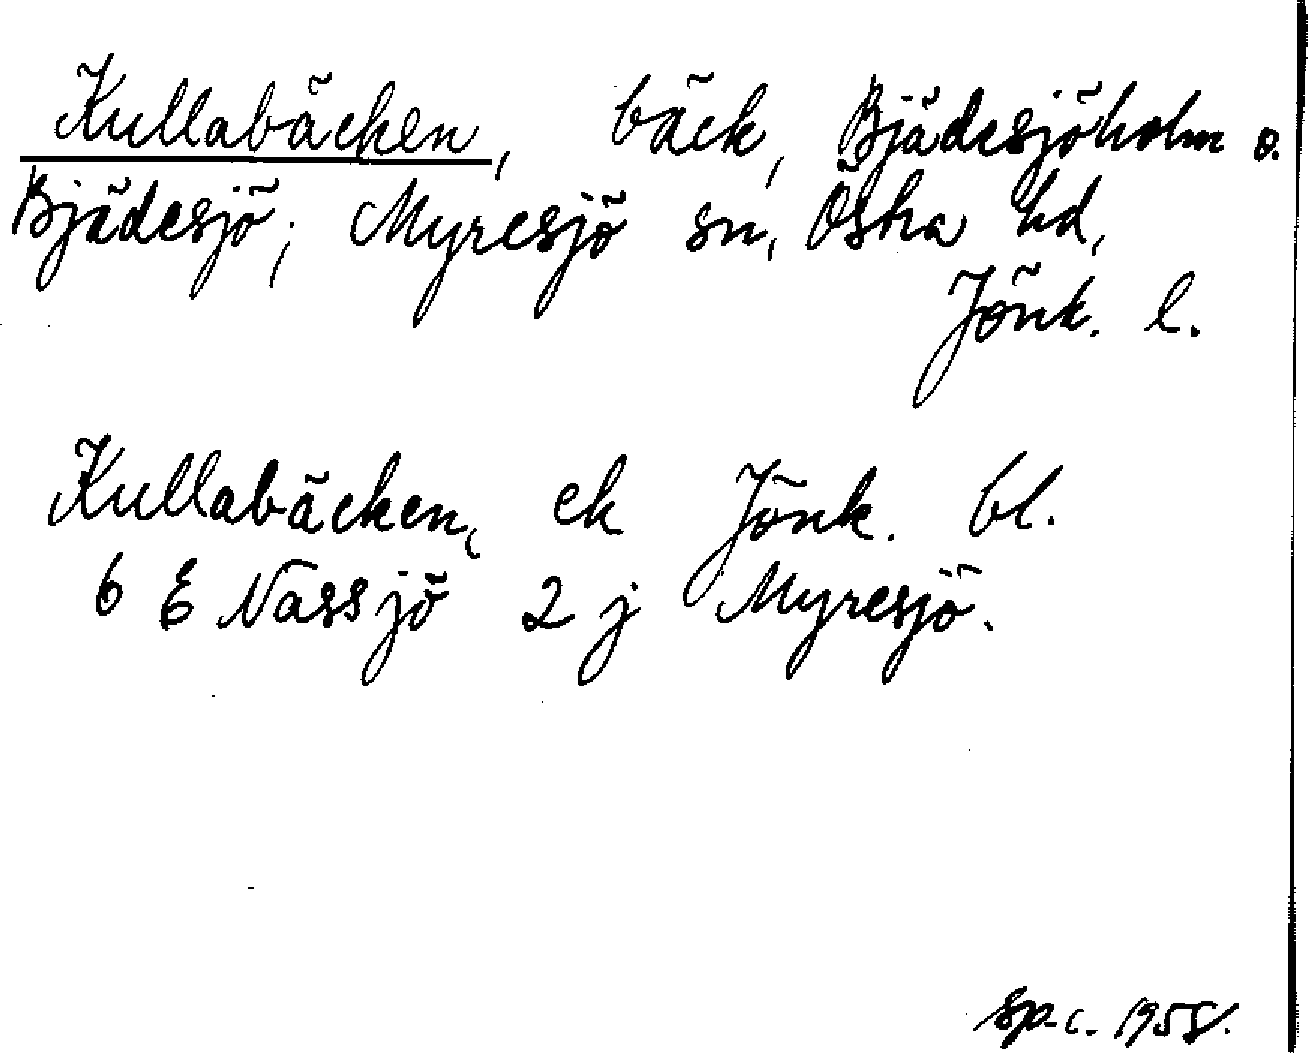 Kullabäcken, bäck, Bjädesjöholm o.
Bjädesjö; Myresjö sn, Östra hd,
Jönk. l.
Kullabäcken, ek Jönk. bl.
6 E Nässjö 2 j Myresjö.
Sp.c. 1958.